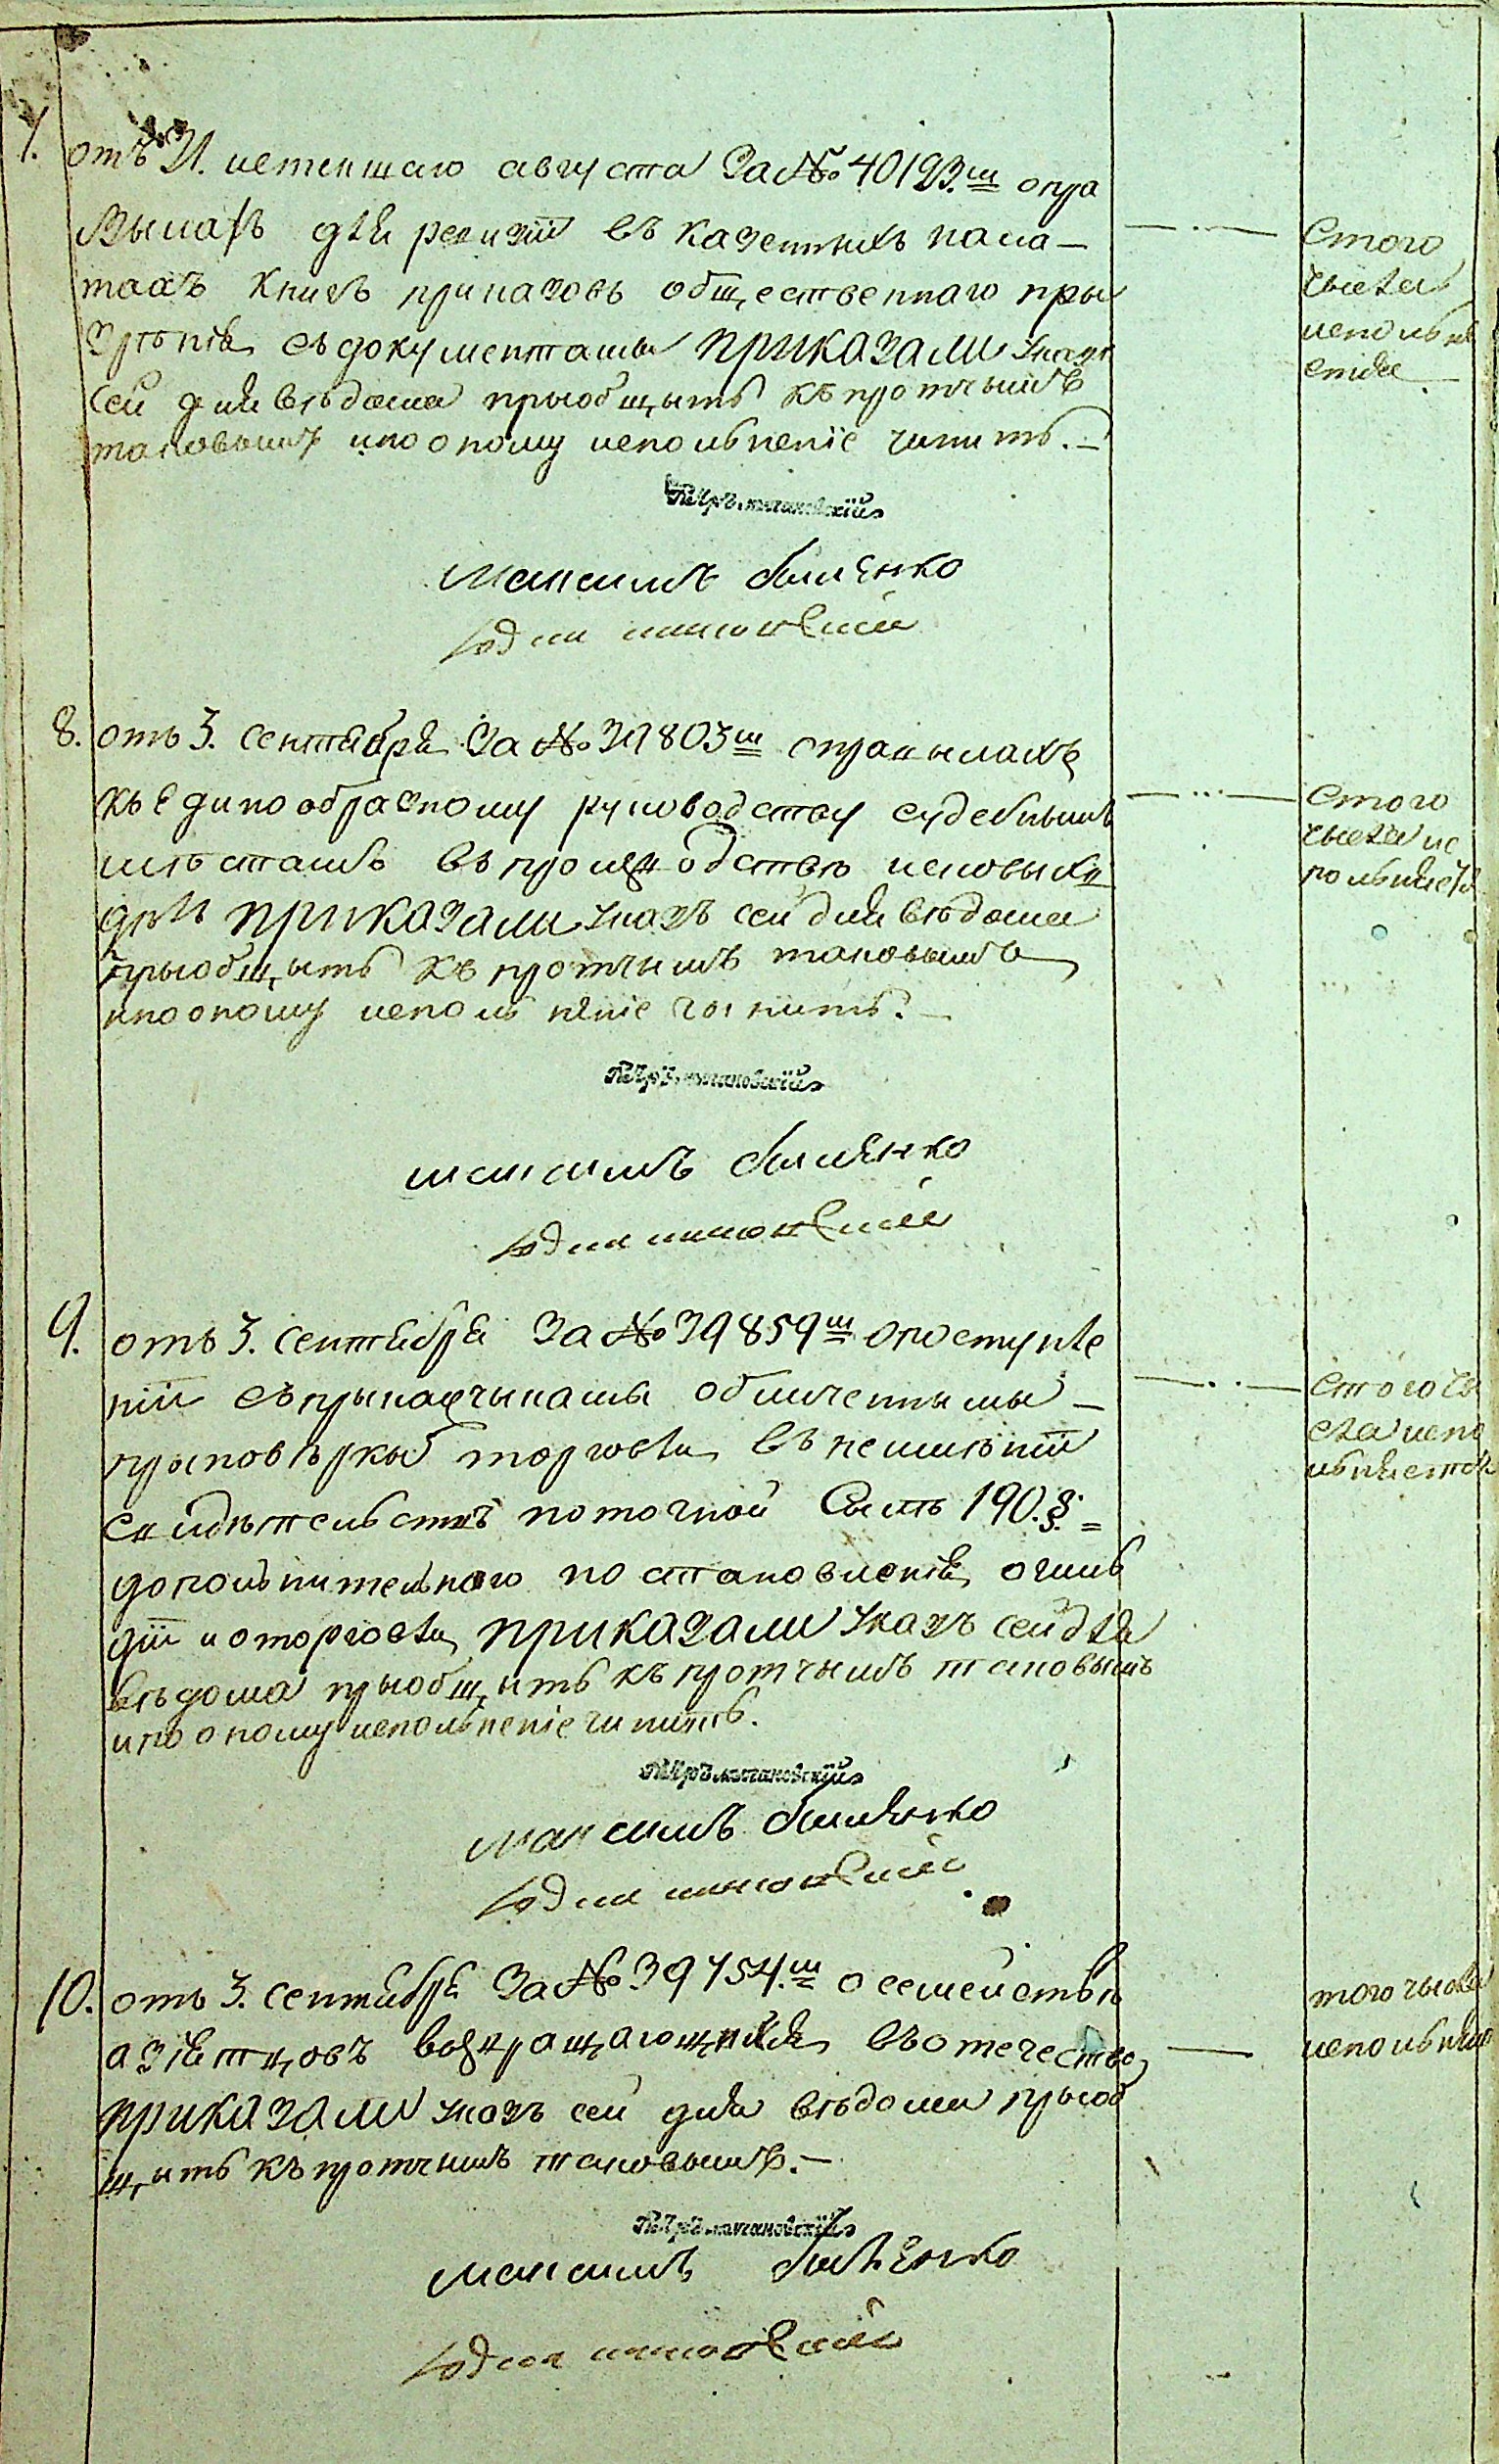 7. отъ 31. истекшаго августа За № 40193.мъ опра
вылахъ для ревизіи въ казенныхъ пала–
тахъ книгъ приказовъ общественнаго при
зрѣнія съ документами приказали указъ
сей для вѣдома прыобщыть къ протчымъ
таковымъ и по оному исполненіе чинить.–
Максимъ
8. отъ 3. сентября За № 39803мъ о правылахъ
къ единообразному руководству судебнымъ
мѣстамъ въ производствѣ исковыхъ
дѣлъ приказали указъ сей для вѣдома
прыобщыть къ протчимъ таковымъ
и по оному исполненіе чынить.–
Максимъ
9. отъ 3. сентября За № 39859мъ о поступле
ніи съ прыкащыками обличенными –
прыповѣркы торговли въ неимѣніи
свидѣтельствъ по точной силѣ 190.§. =
дополнительнаго постановленія о гиль
діи и о торговли приказали указъ сей для
вѣдома прыобщыть къ протчымъ таковымъ
и по оному исполненіе чинить.
Максимъ
10. отъ 3. сентября За № 39754.мъ о семействѣ
азіятцовъ возвращающихся въ отечество,
приказали указъ сей для вѣдома прыоб
щыть къ протчимъ таковымъ.–
Максимъ
с того
чысла
исполня
ется
с того
чысла ис
полняется
с того чы
сла испо
лняется
того чысла
исполняе